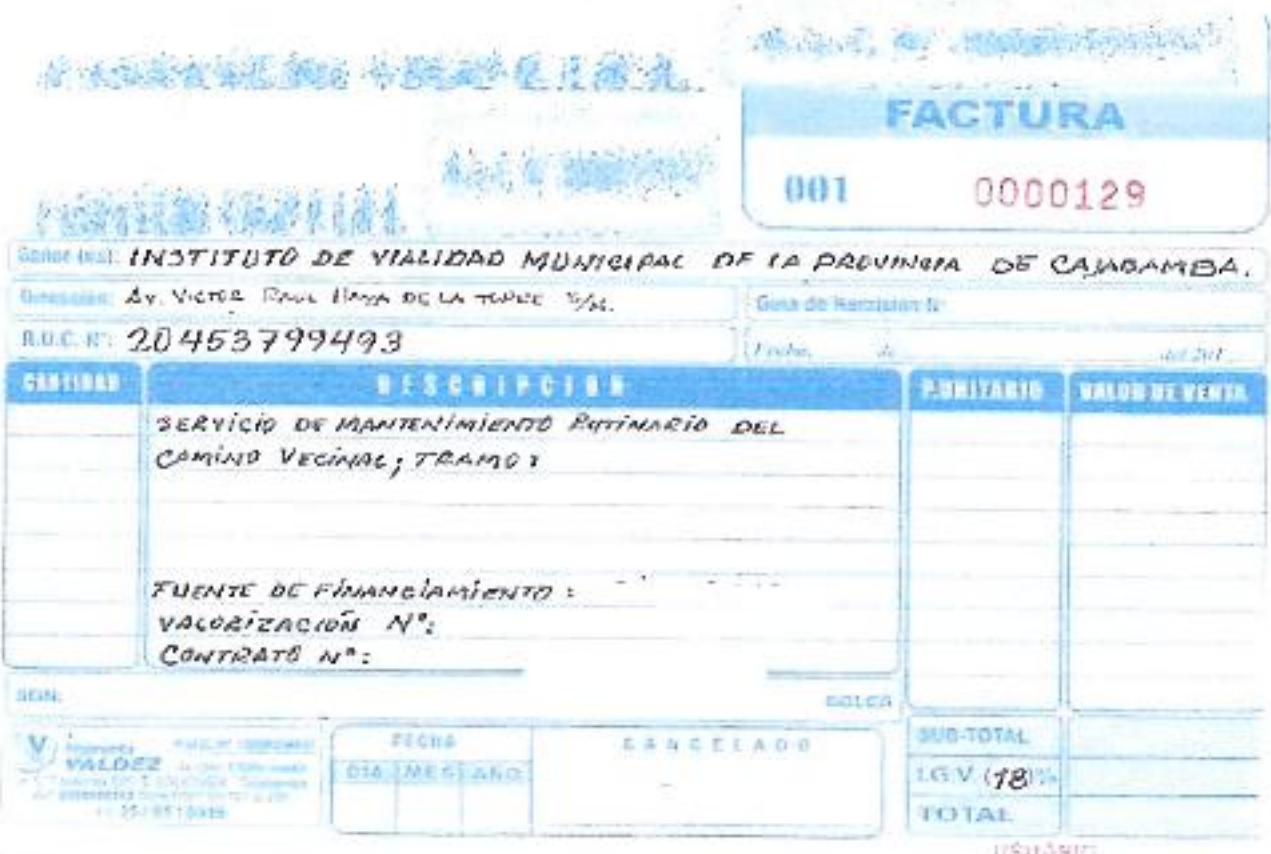 FACTURA
001 0000129
Señor (es): INSTITUTO DE VIALIDAD MUNICIPAL DE LA PROVINCIA DE CAJABAMBA.
Dirección: AV. VICTOR RAUL HAYA DE LA TORRE S/N.
Guia de Remisión N°
R.U.C. N°: 20453799493
Fecha, de del 201
CANTIDAD DESCRIPCION P.UNITARIO VALOR DE VENTA
SERVICIO DE MANTENIMIENTO RUTINARIO DEL
CAMINO VECINAL; TRAMO:
FUENTE DE FINANCIAMIENTO:
VALORIZACIÓN N°:
CONTRATO N°:
SON:
V Imprenta
VALDEZ
FECHA
DIA MES AÑO
CANCELADO
SUB-TOTAL
I.G.V. (18)%
TOTAL
USUARIO